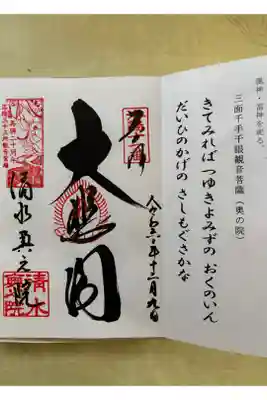 風神・雷神を祀る。
三面千手千眼観音菩薩(奥の院)
きてみれば つゆきよみずの おくのいん
だいひのかげの さしもぐさかな
令和六年十二月九日
奉拝
大悲閣
清水奥之院